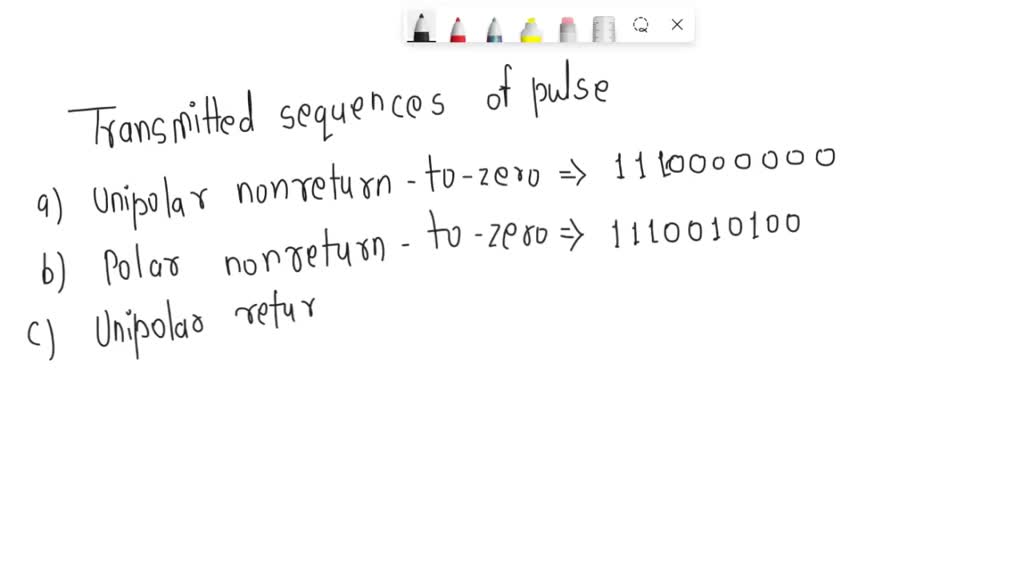 Transmitted sequences of pulse
a) Unipolar nonreturn - to - zero => 1110000000
b) Polar nonreturn - to - zero => 1110010100
c) Unipolar retur